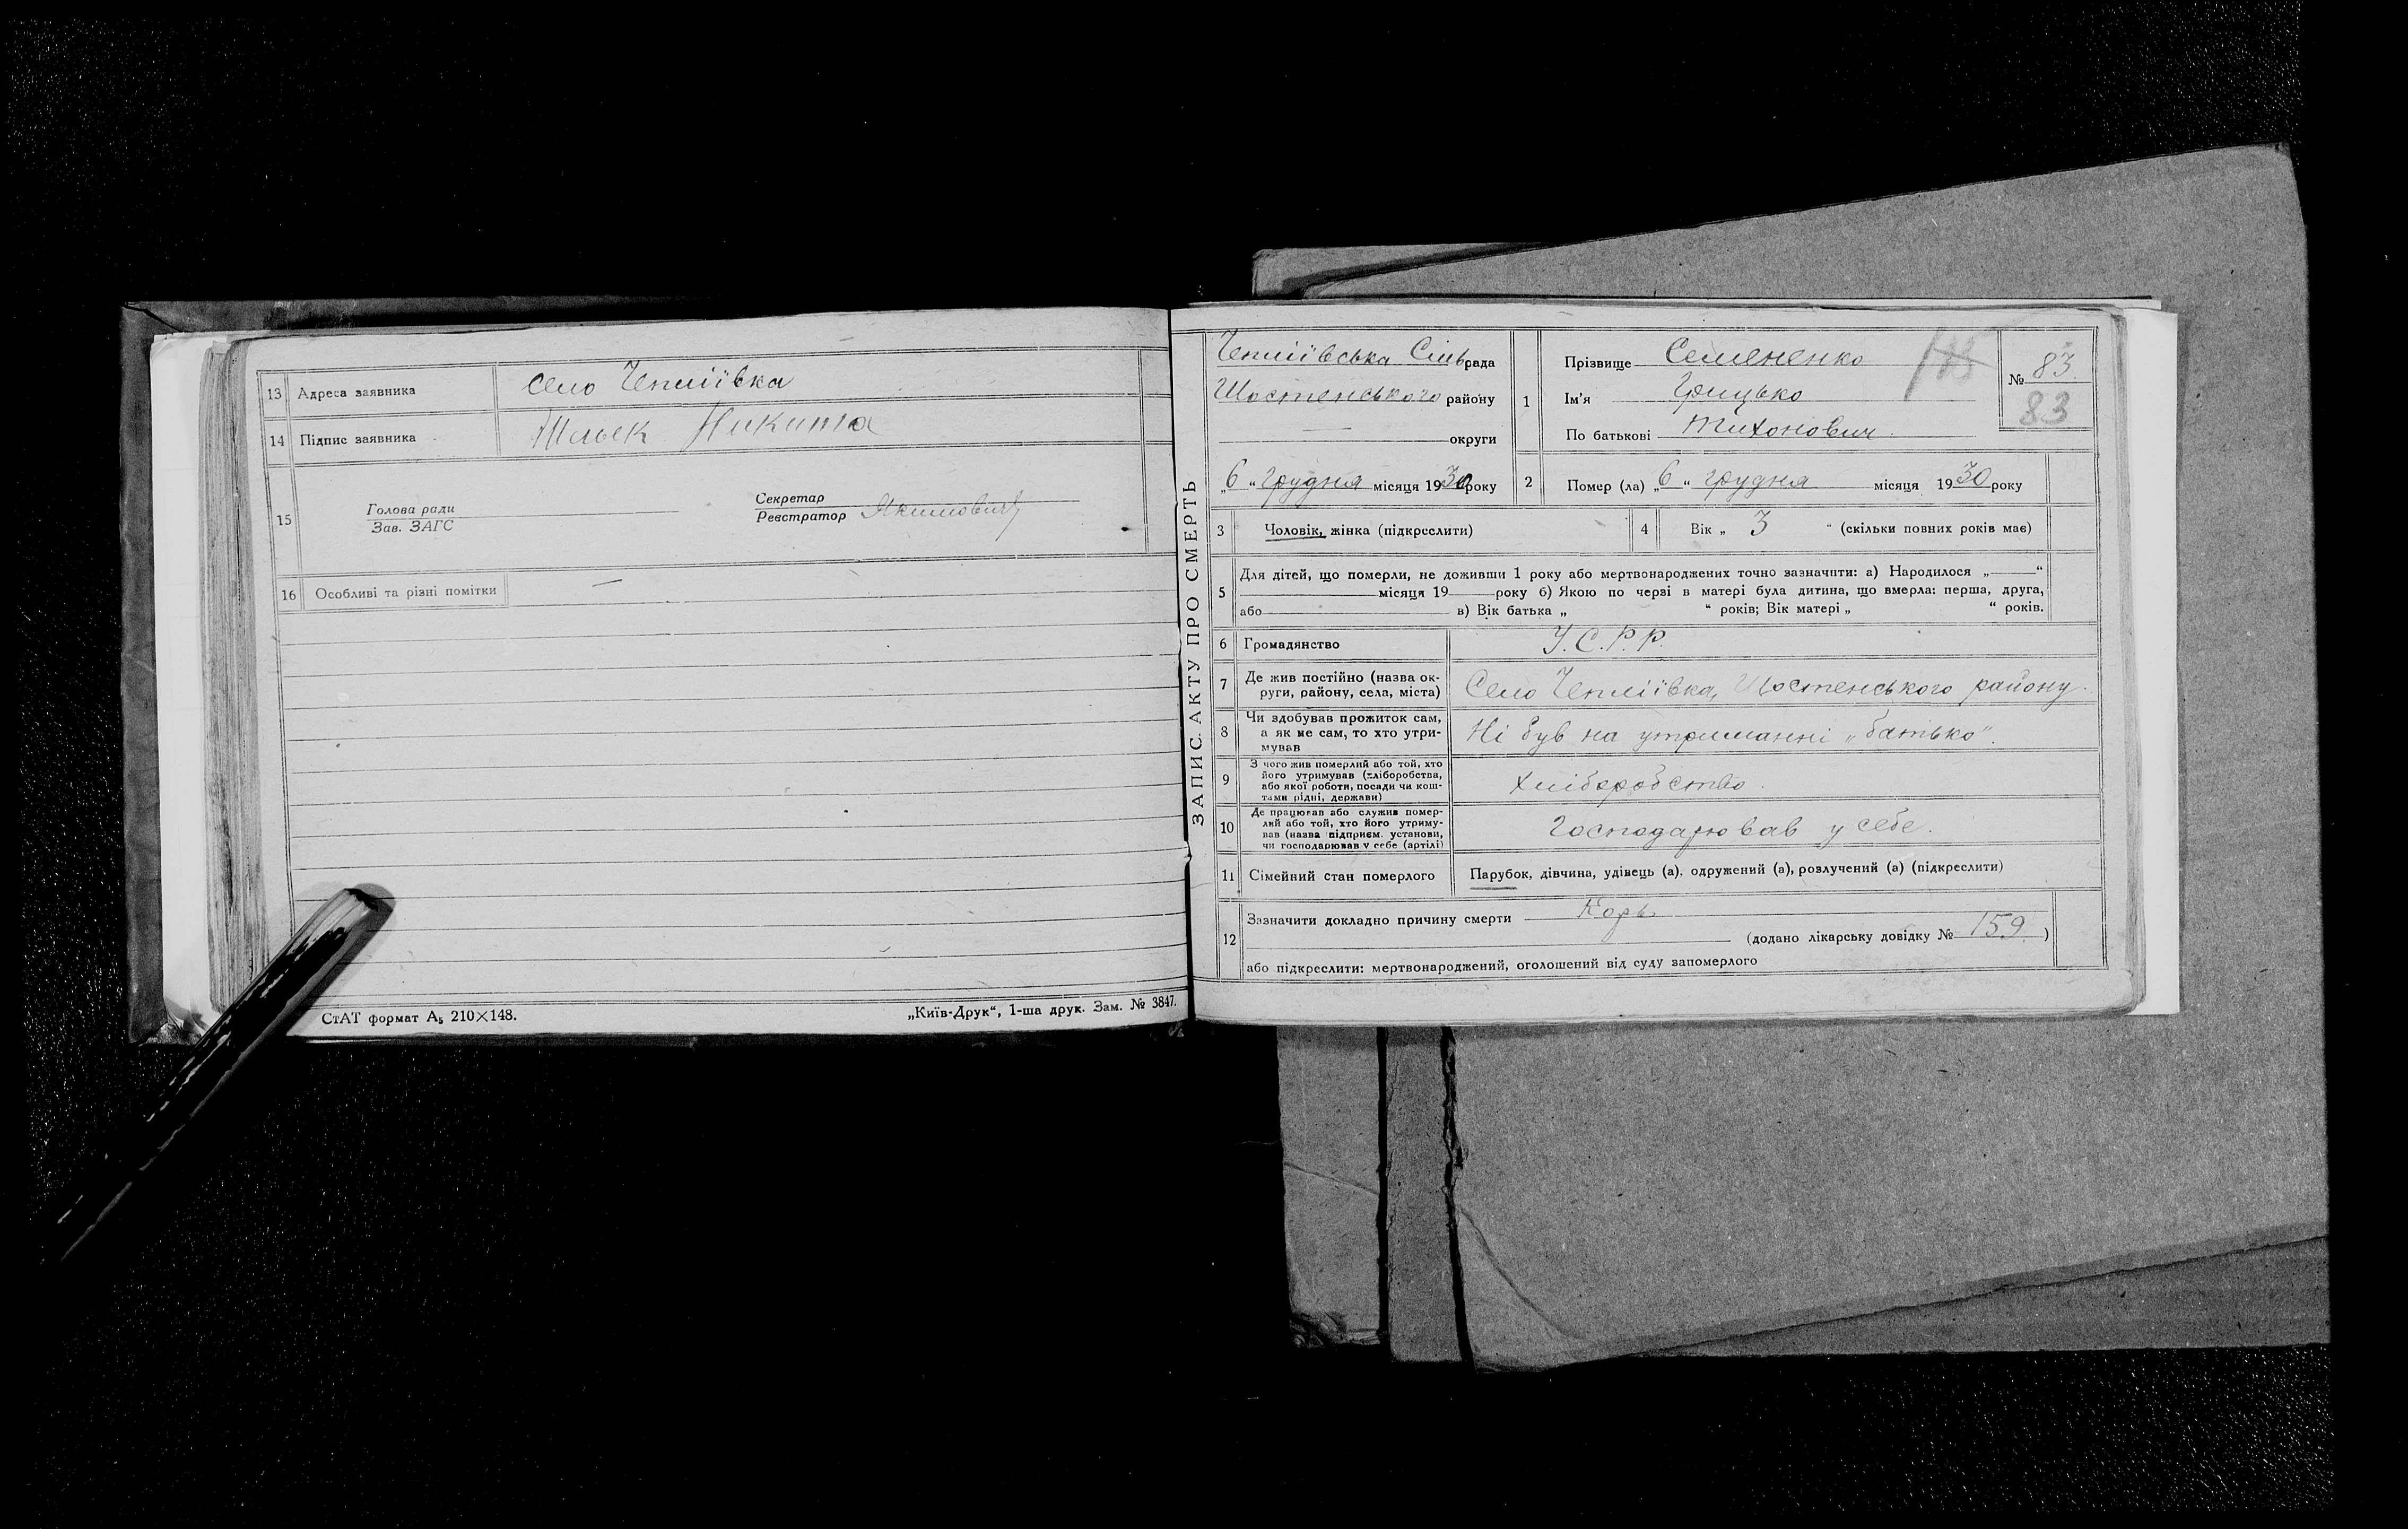 13 Адреса заявника село Чепліївка
14 Підпис заявника Никита
15 Голова ради
Зав. ЗАГС
Секретар
Реєстратор Якимович
16 Особливі та різні помітки —
СтАТ формат А₅ 210×148.
„Київ-Друк“, 1-ша друк. Зам. № 3847.
ЗАПИС. АКТУ ПРО СМЕРТЬ
Чепліївська Сільрада
Шостенського району
— округи
„6“ грудня місяця 1930 року
1 Прізвище Семененко
Ім'я Грицько
По батькові Тихонович
№ 83
83
2 Помер (ла) „6“ грудня місяця 1930 року
3 Чоловік, жінка (підкреслити)
4 Вік „ 3 “ (скільки повних років має)
5 Для дітей, що померли, не доживши 1 року або мертвонароджених точно зазначити: а) Народилося „—“
місяця 19 року б) Якою по черзі в матері була дитина, що вмерла: перша, друга,
або в) Вік батька „ “ років; Вік матері „ “ років.
6 Громадянство У.С.Р.Р.
7 Де жив постійно (назва ок-
руги, району, села, міста) Село Чепліївка, Шостенського району.
8 Чи здобував прожиток сам,
а як не сам, то хто утри-
мував Ні був на утриманні „батько“.
9 З чого жив померлий або той, хто
його утримував (хліборобства,
або якої роботи, посади чи кош-
тами рідні, держави) Хліборобство.
10 Де працював або служив помер-
лий або той, хто його утриму-
вав (назва підприєм. установи,
чи господарював у себе (артілі) Господарював у себе.
11 Сімейний стан померлого Парубок, дівчина, удівець (а), одружений (а), розлучений (а) (підкреслити)
12 Зазначити докладно причину смерти Корь
(додано лікарську довідку № 159.)
або підкреслити: мертвонароджений, оголошений від суду запомерлого